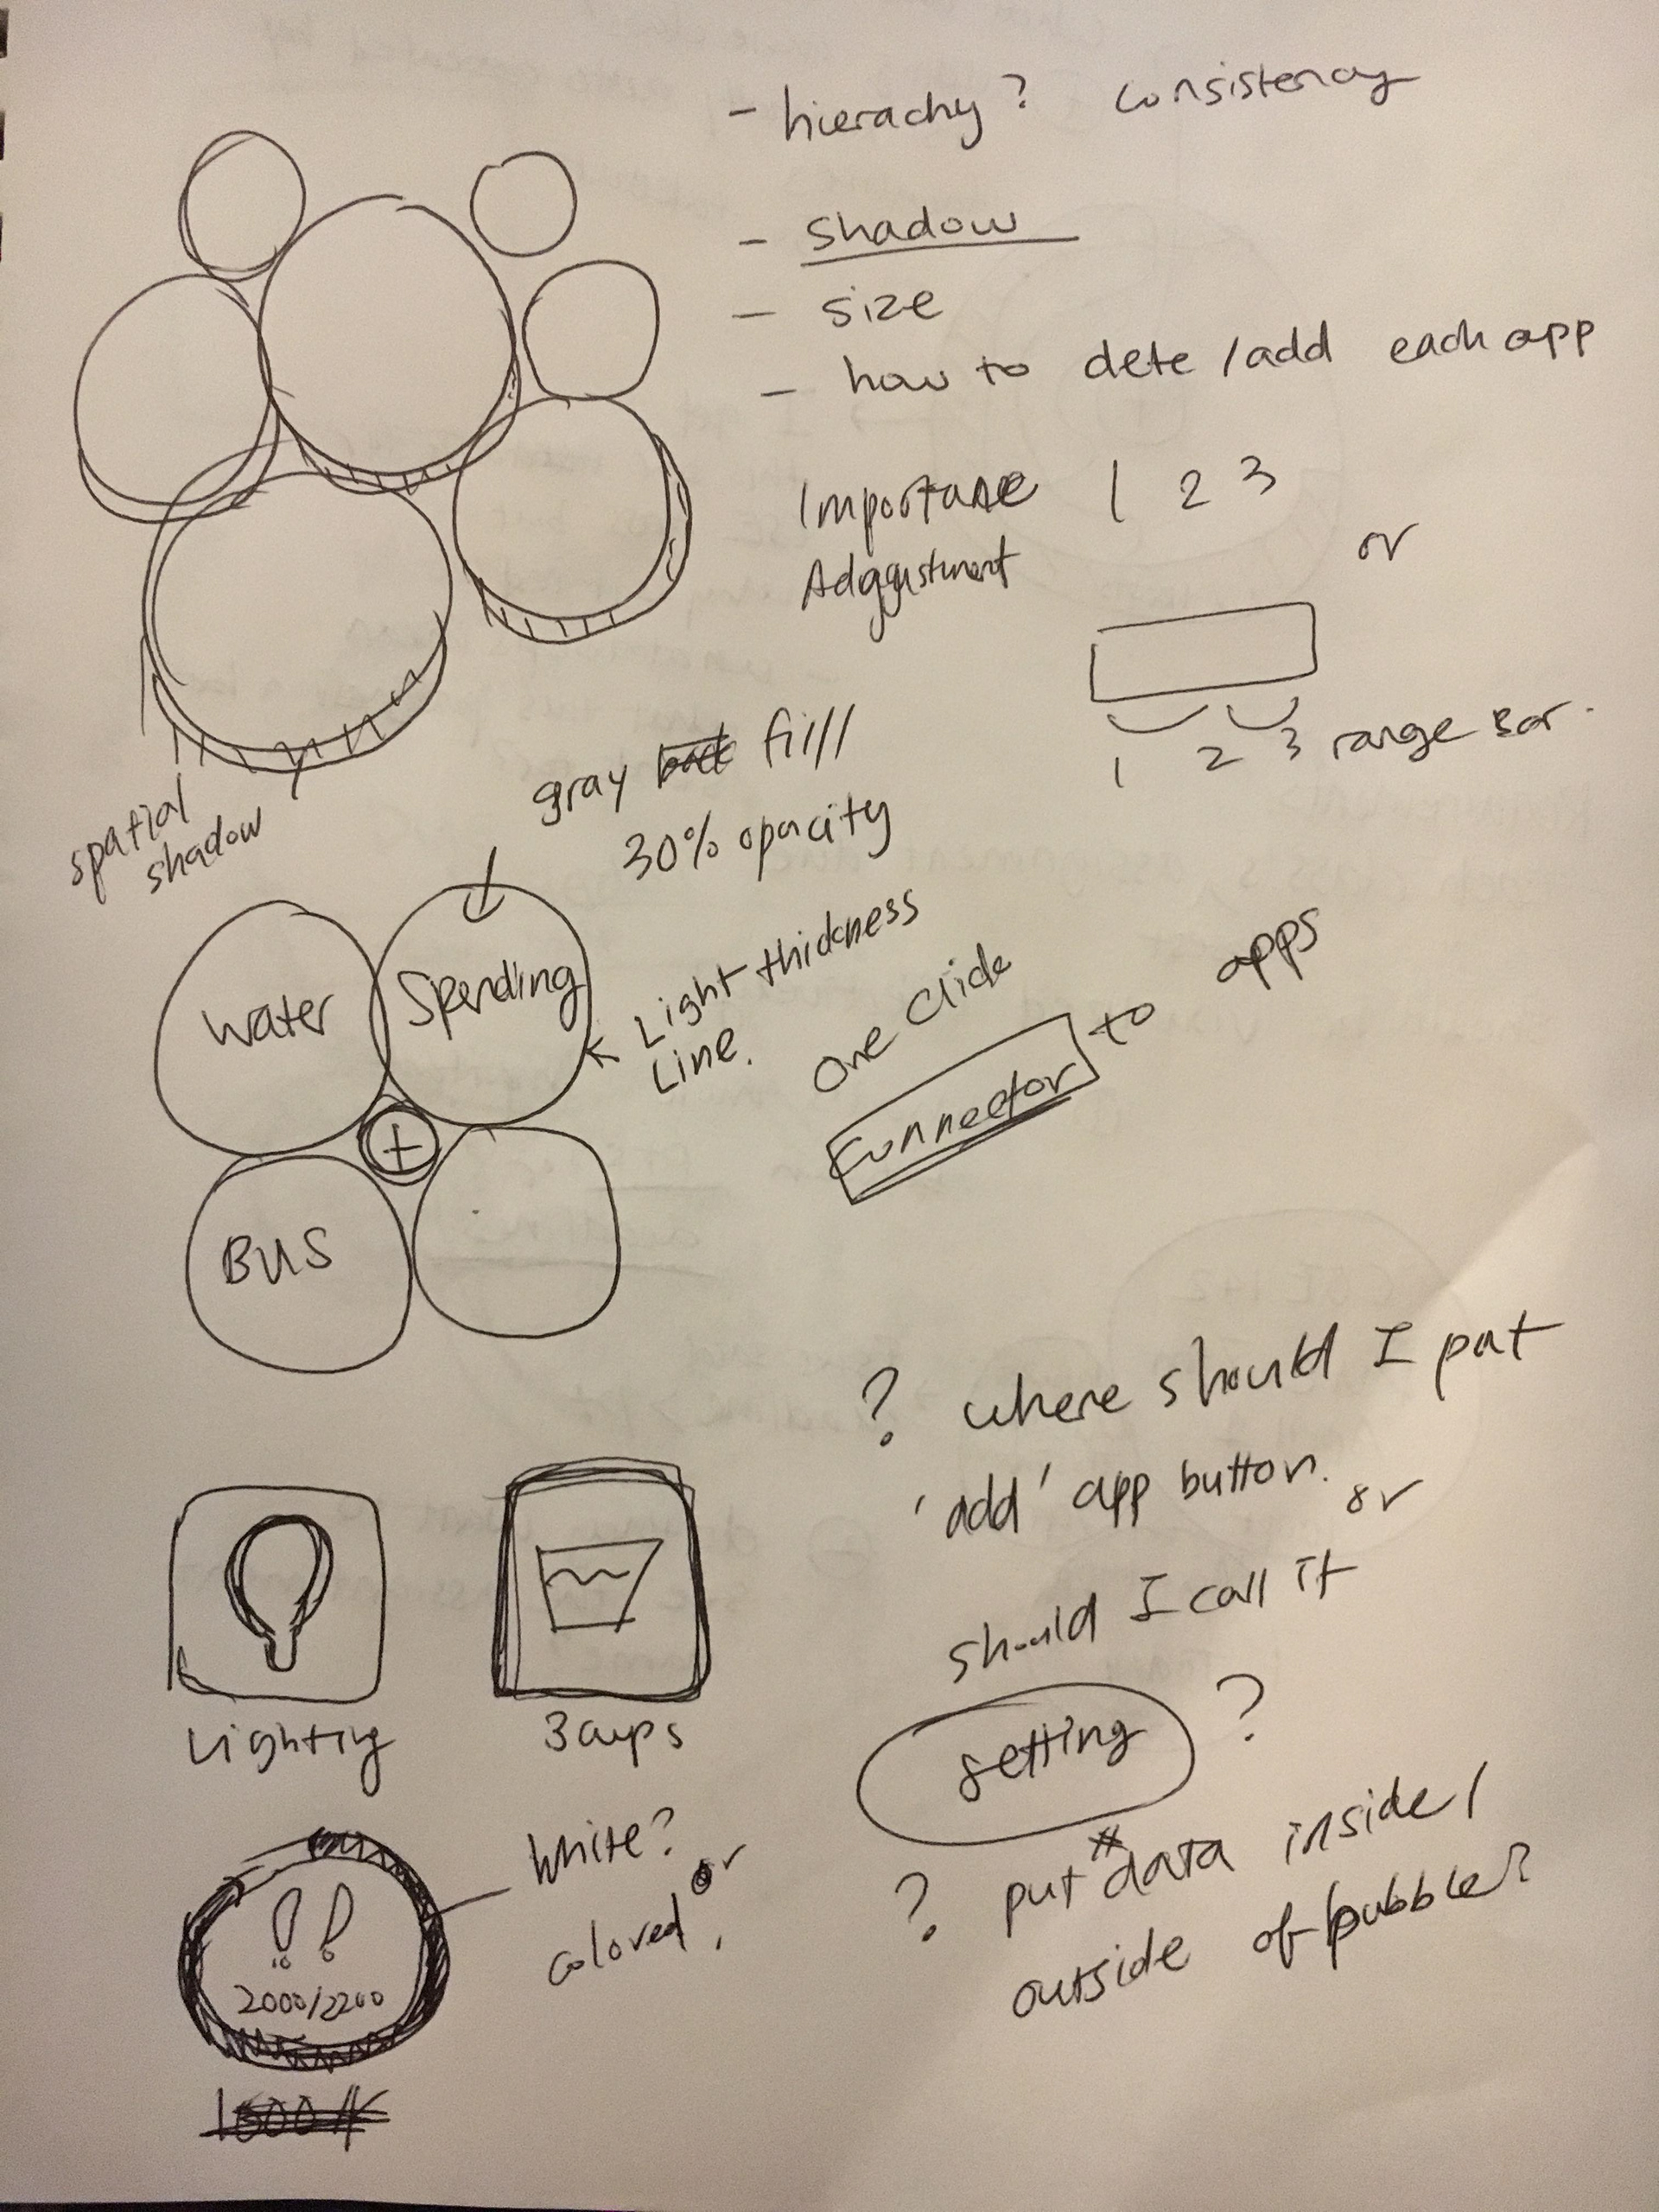 - hierachy? consistency
- shadow
- size
- how to dete/add each app
Importane 1 2 3
Adggustment
or
1 2 3 range Bar.
spatial
shadow
gray fill
30% opacity
Water
Spending
Light thickness
Line.
one click
connector to apps
+
BUS
? where should I put
'add' app button. or
should I call it
setting ?
Lighting
3 cups
White? or
colored.
2000/2200
? put # data inside/
outside of bubble?